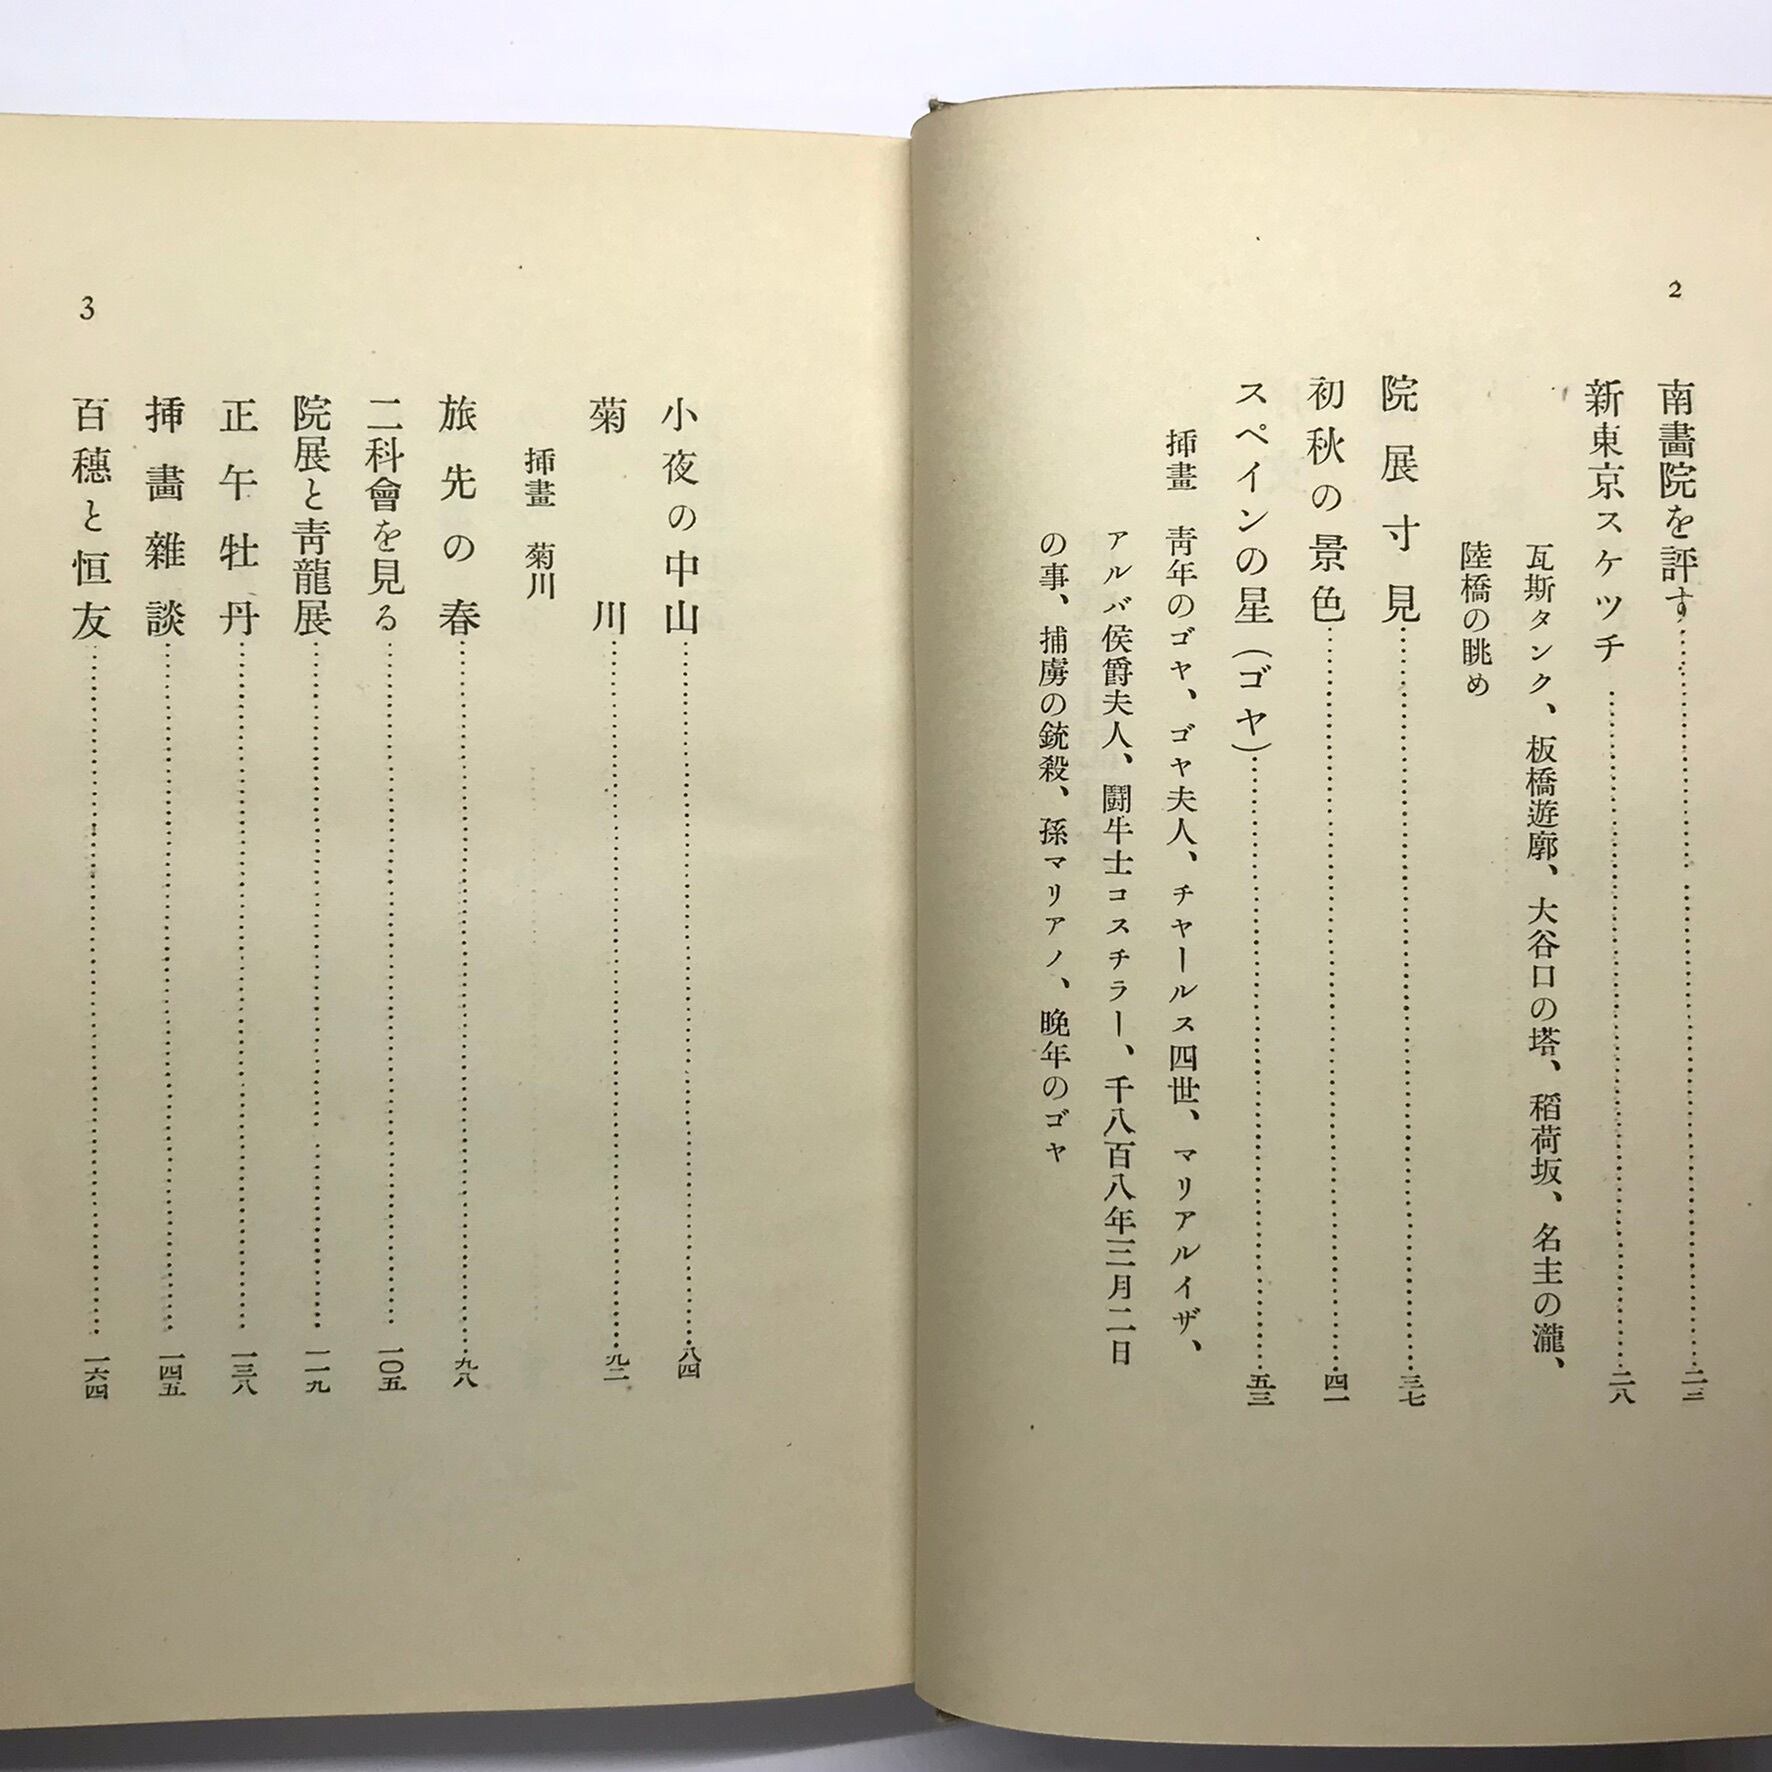 2
南畫院を評す……二三
新東京スケツチ……二八
瓦斯タンク、板橋遊廓、大谷口の塔、稻荷坂、名主の瀧、
陸橋の眺め
院展寸見……三七
初秋の景色……四一
スペインの星（ゴヤ）……五三
挿畫　靑年のゴヤ、ゴヤ夫人、チャールス四世、マリアルイザ、
アルバ侯爵夫人、鬪牛士コスチラー、千八百八年三月二日
の事、捕虜の銃殺、孫マリアノ、晩年のゴヤ
3
小夜の中山……八四
菊川……九二
挿畫　菊川
旅先の春……九八
二科會を見る……一〇五
院展と靑龍展……一一九
正午牡丹……一三八
挿畫雜談……一四五
百穗と恒友……一六四